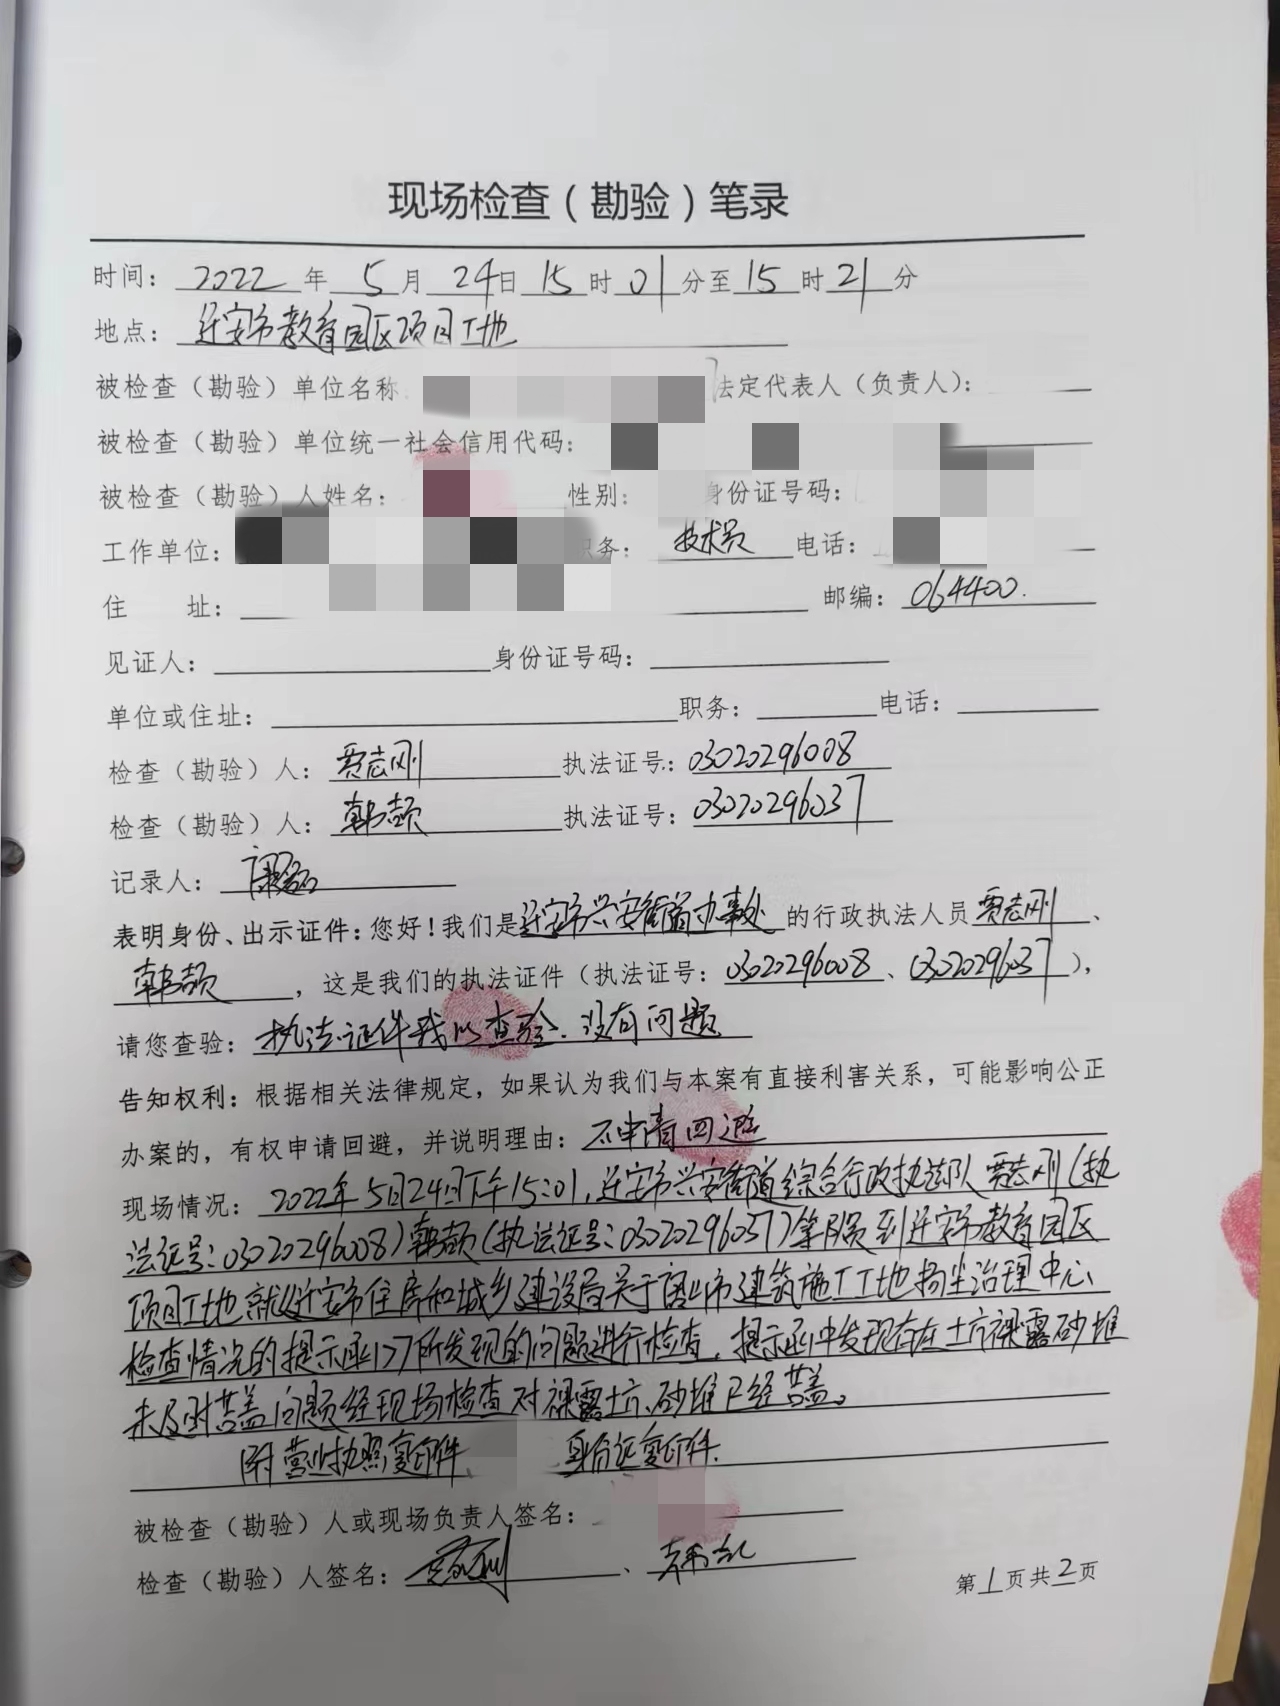 现场检查（勘验）笔录
时间：2022年5月24日15时01分至15时21分
地点：迁安市教育园区项目工地
被检查（勘验）单位名称 法定代表人（负责人）：
被检查（勘验）单位统一社会信用代码：
被检查（勘验）人姓名： 性别： 身份证号码：
工作单位： 职务：技术员 电话：
住 址： 邮编：064400.
见证人： 身份证号码：
单位或住址： 职务： 电话：
检查（勘验）人：贾志刚 执法证号：03020296008
检查（勘验）人：韩颉 执法证号：03020296037
记录人：
表明身份、出示证件：您好！我们是迁安市兴安街道办事处的行政执法人员贾志刚、
韩颉，这是我们的执法证件（执法证号：03020296008、03020296037），
请您查验：执法证件我以查验.没有问题
告知权利：根据相关法律规定，如果认为我们与本案有直接利害关系，可能影响公正
办案的，有权申请回避，并说明理由：不申请回避
现场情况：2022年5月24日下午15:01,迁安市兴安街道综合行政执法队贾志刚(执
法证号:03020296008)韩颉(执法证号:03020296037)等队员到迁安市教育园区
项目工地就《迁安市住房和城乡建设局关于唐山市建筑施工工地扬尘治理中心
检查情况的提示函17》所发现的问题进行检查，提示函中发现存在土方裸露砂堆
未及时苫盖问题经现场检查对裸露土方、砂堆已经苫盖。
附营业执照复印件 身份证复印件.
被检查（勘验）人或现场负责人签名：
检查（勘验）人签名： 、
第1页共2页